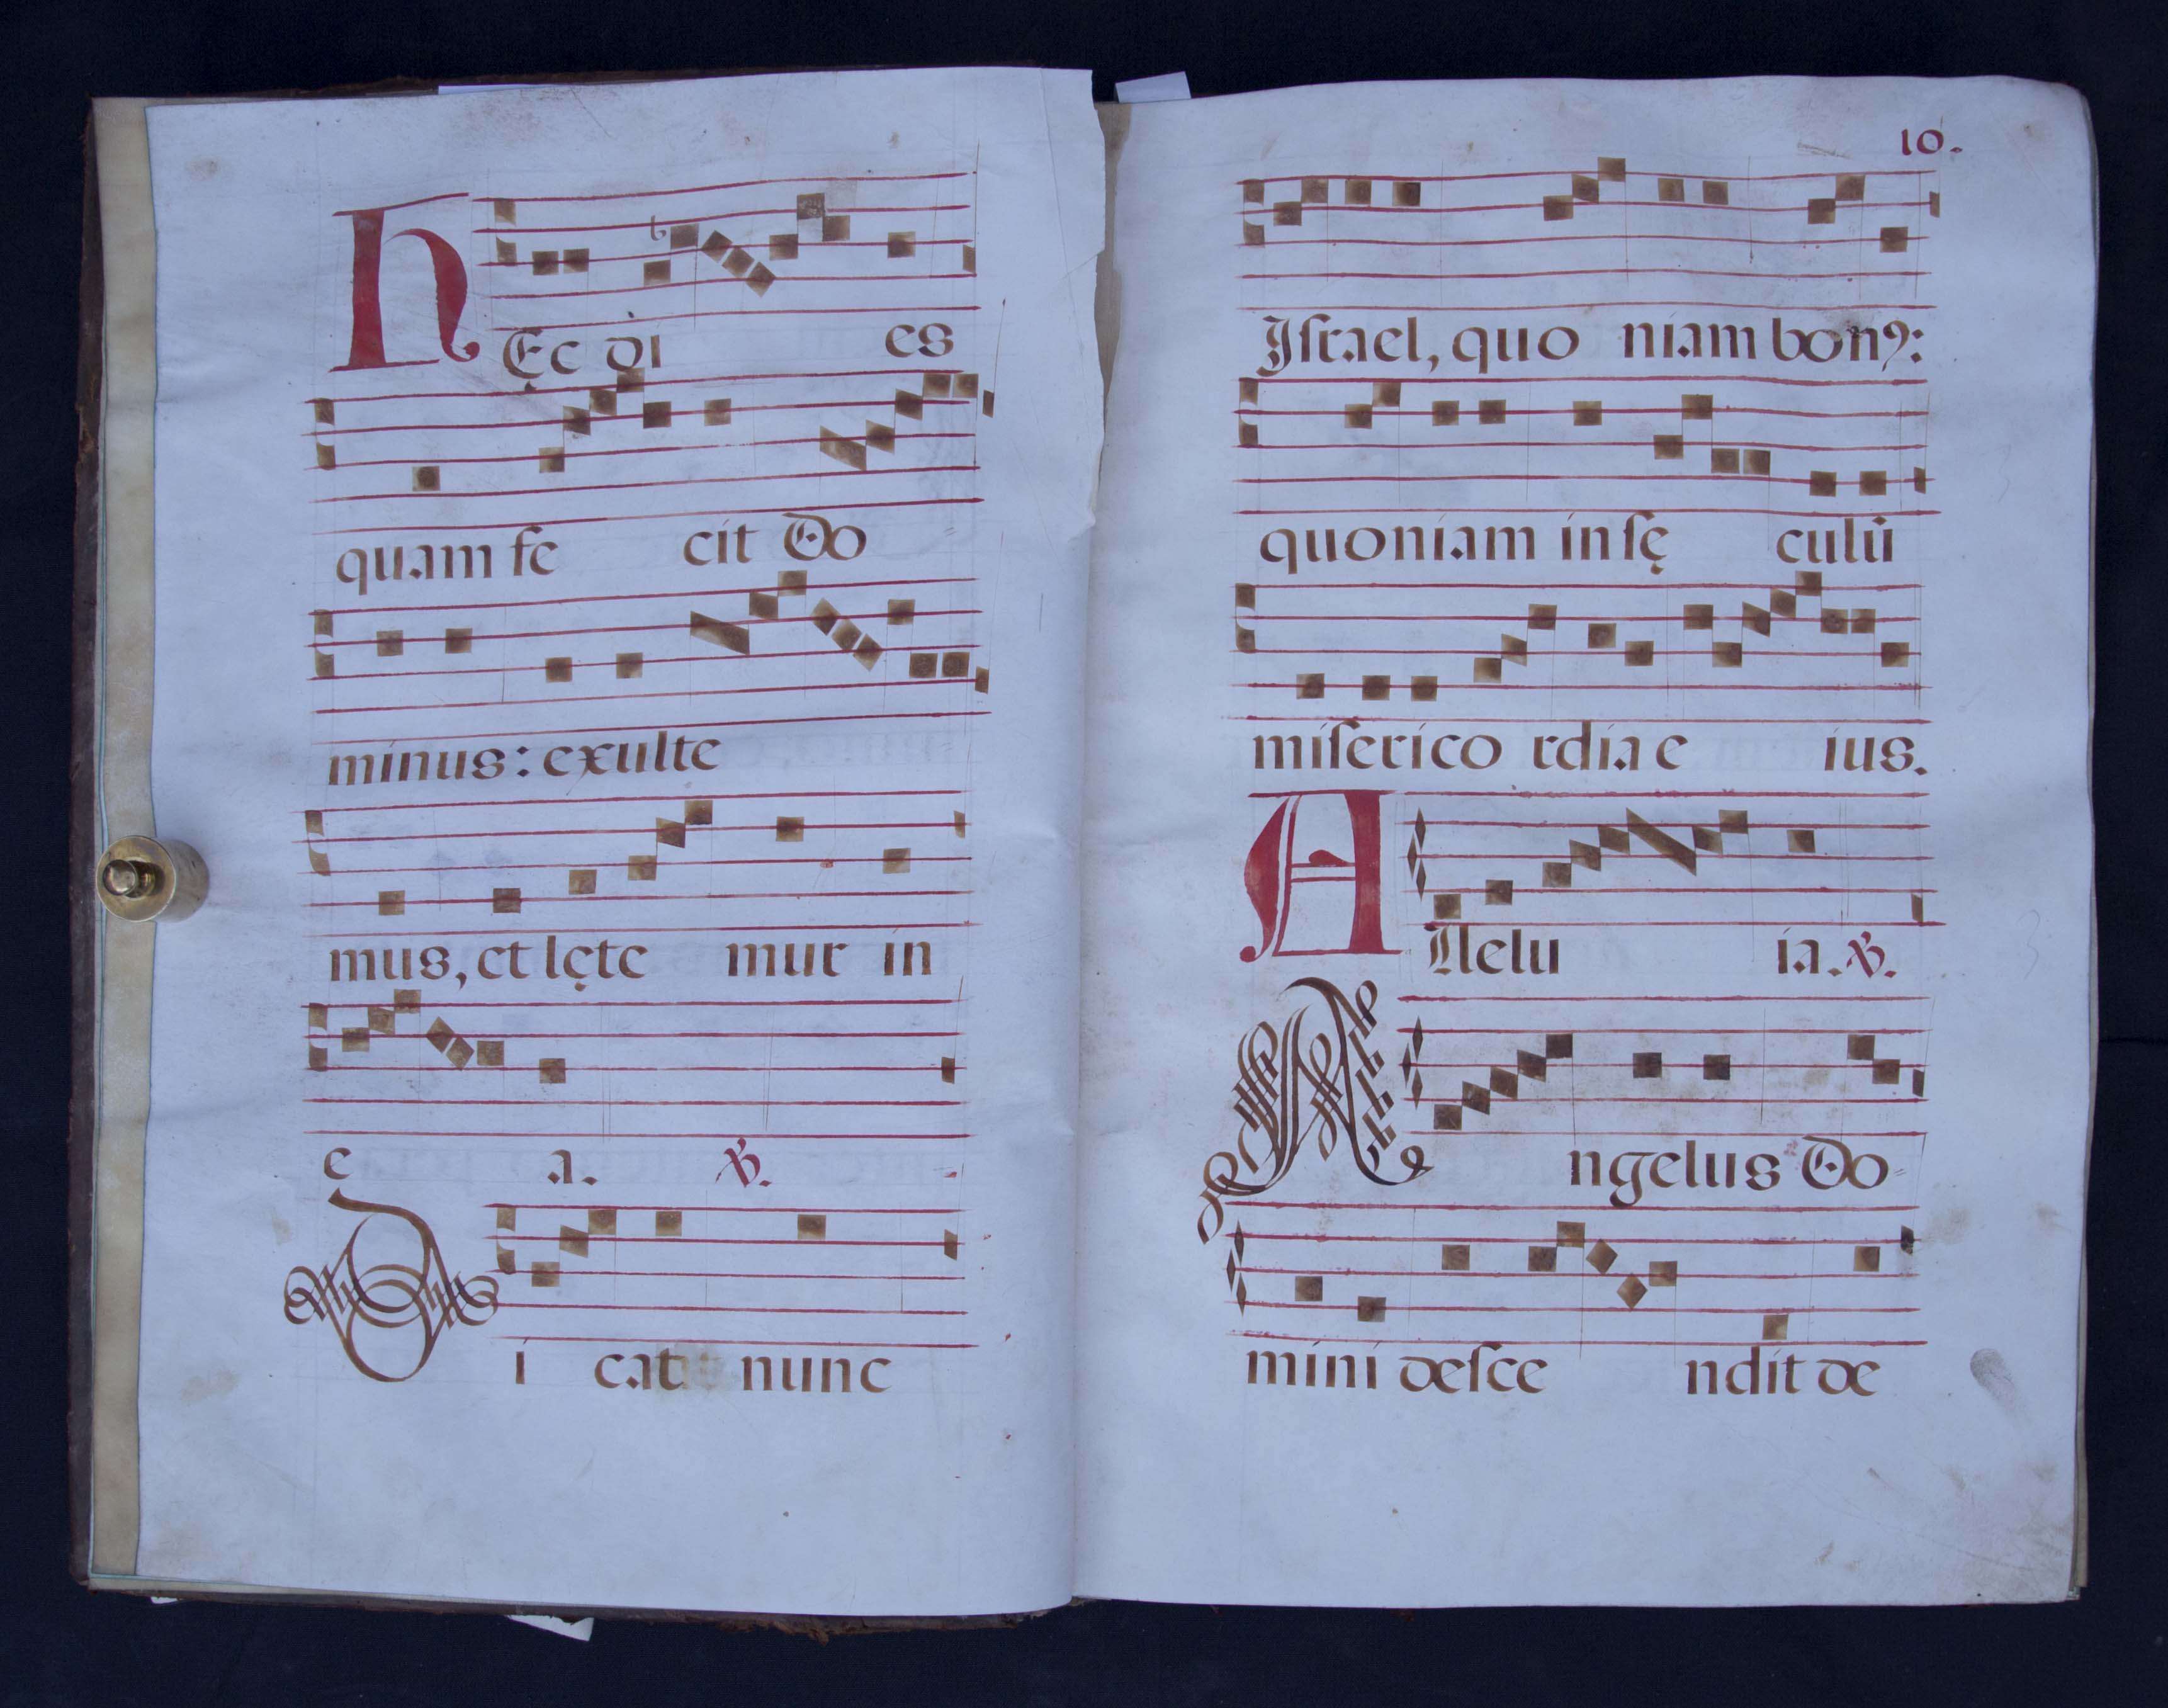 HĘc di es
quam fe cit Do
minus: exulte
mus, et lęte mur in
e a. ℣.
Di cat nunc
10.
Iſrael, quo niam bonꝰ:
quoniam in ſę culū
miſerico rdia e ius.
Allelu ia. ℣.
Angelus Do
mini deſce ndit de